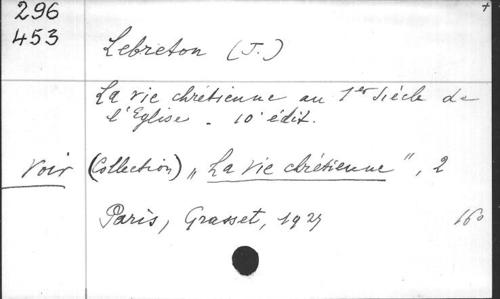 296
453
Lebreton (J.)
La vie chrétienne au 1er siècle de
l'Eglise. 10e édit.
voir (Collection) "La vie chrétienne", 2
Paris, Grasset, 1927
160